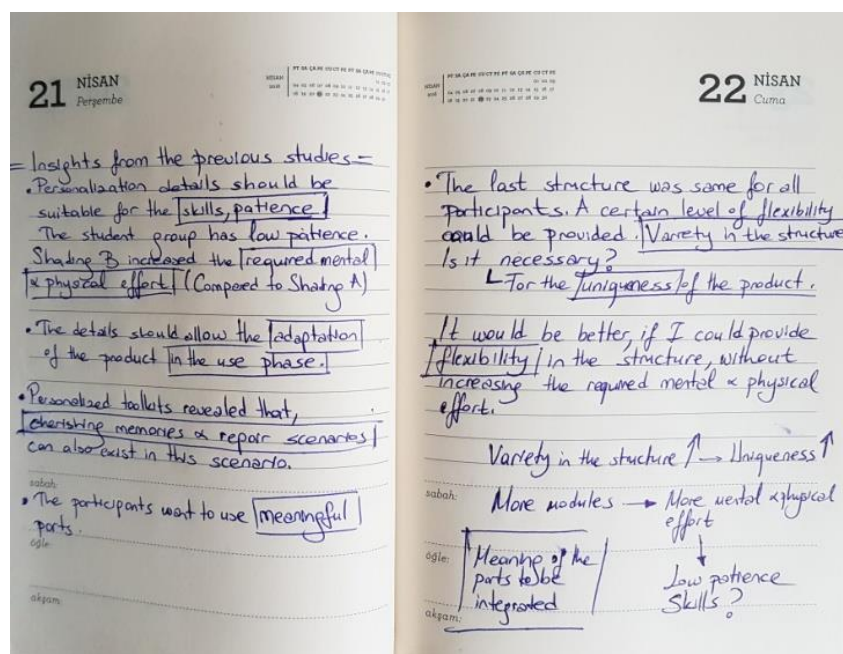 21 NİSAN
Perşembe
= Insights from the previous studies =
• Personalization details should be
suitable for the skills, patience.
The student group has low patience.
Shading B increased the required mental
& physical effort (Compared to Shading A)
• The details should allow the adaptation
of the product in the use phase.
• Personalized toolkits revealed that,
cherishing memories & repair scenarios
can also exist in this scenario.
sabah:
• The participants want to use meaningful
parts.
öğle:
akşam:
22 NİSAN
Cuma
• The last structure was same for all
participants. A certain level of flexibility
could be provided. Variety in the structure
Is it necessary?
For the uniqueness of the product.
It would be better, if I could provide
flexibility in the structure, without
increasing the required mental & physical
effort.
Variety in the structure ↑ → Uniqueness ↑
sabah: More modules → More mental & physical
effort
↓
öğle: Meaning of the
parts to be
integrated
Low patience
Skills?
akşam: